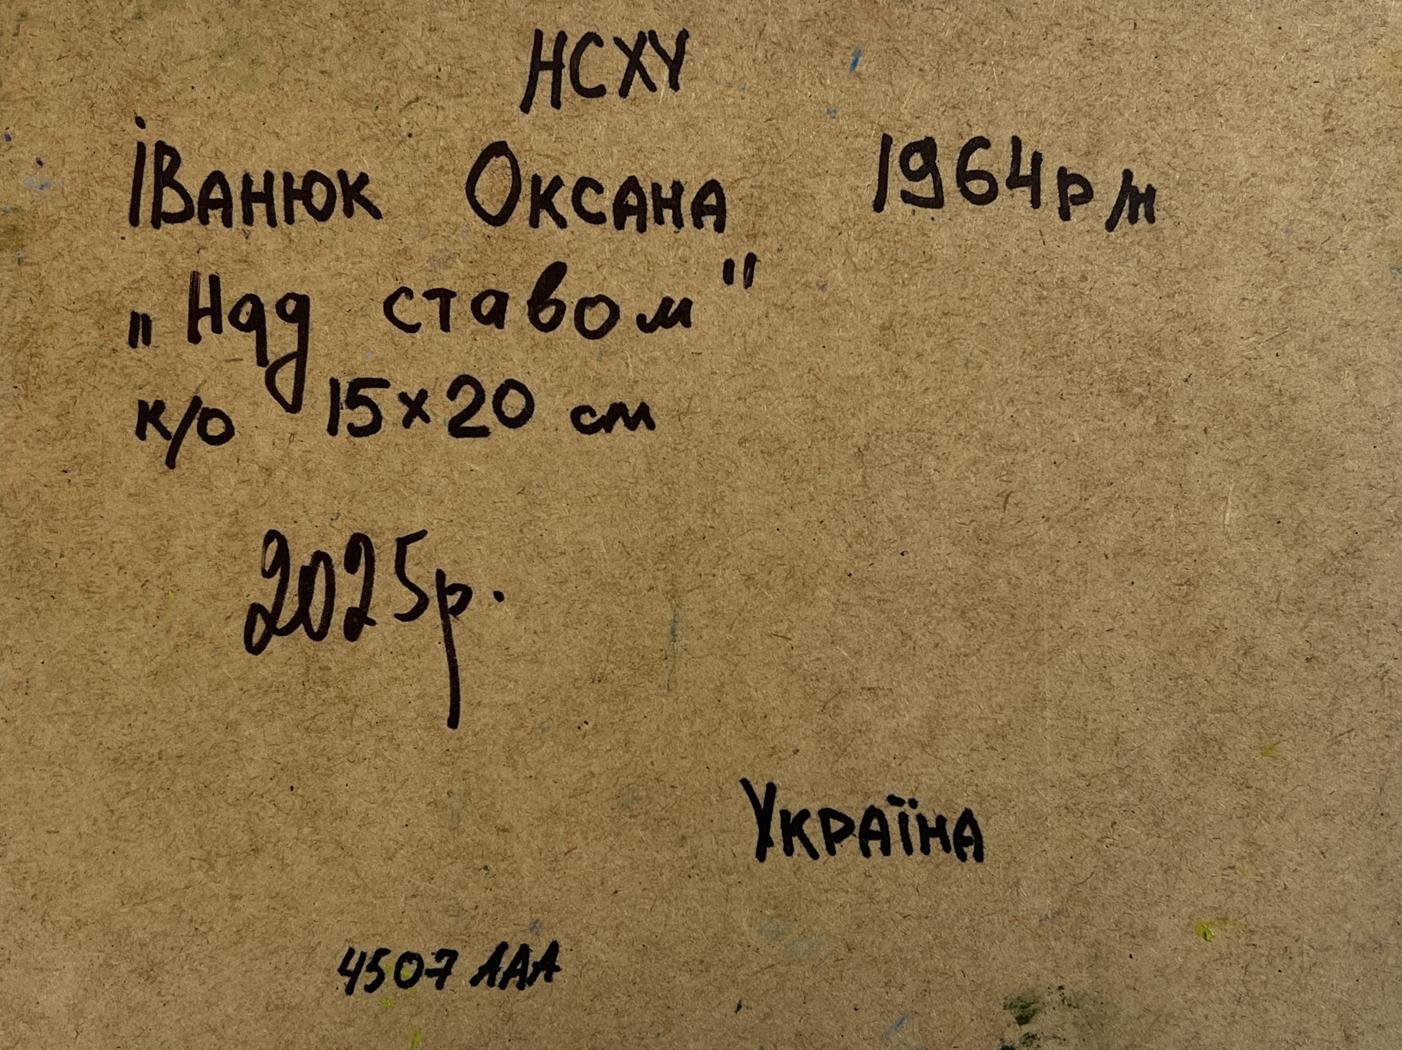 НСХУ
Іванюк Оксана 1964 р/н
„Над ставом"
к/о 15×20 см
2025р.
Україна
4507 ЛАА